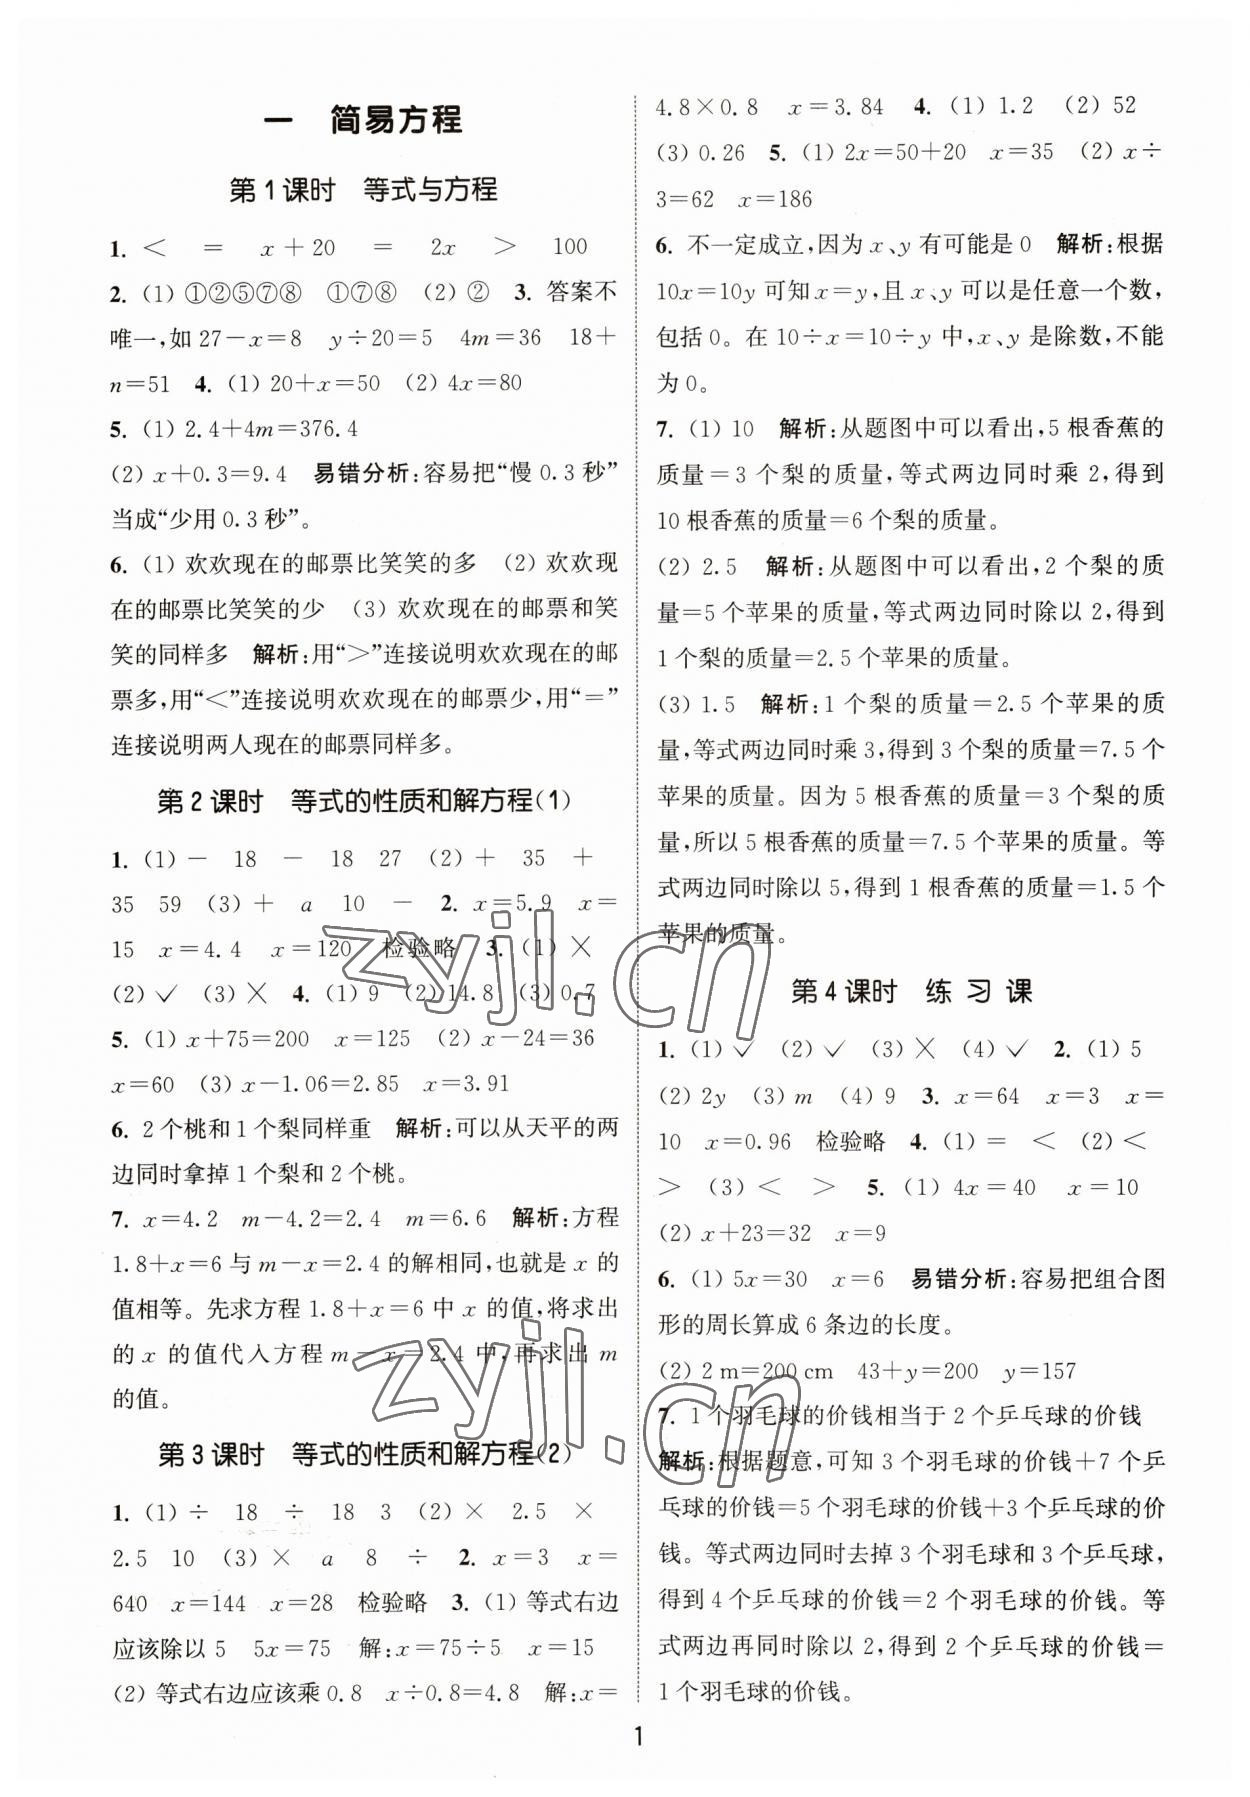 一 简易方程
第1课时 等式与方程
1. < = x+20 = 2x > 100
2. (1) ①②⑤⑦⑧ ①⑦⑧ (2) ② 3. 答案不
唯一,如 27-x=8 y÷20=5 4m=36 18+
n=51 4. (1) 20+x=50 (2) 4x=80
5. (1) 2.4+4m=376.4
(2) x+0.3=9.4 易错分析:容易把“慢 0.3 秒”
当成“少用 0.3 秒”。
6. (1) 欢欢现在的邮票比笑笑的多 (2) 欢欢现
在的邮票比笑笑的少 (3) 欢欢现在的邮票和笑
笑的同样多 解析:用“>”连接说明欢欢现在的邮
票多,用“<”连接说明欢欢现在的邮票少,用“=”
连接说明两人现在的邮票同样多。
第2课时 等式的性质和解方程(1)
1. (1) - 18 - 18 27 (2) + 35 +
35 59 (3) + a 10 - 2. x=5.9 x=
15 x=4.4 x=120 检验略 3. (1) ×
(2) ✓ (3) × 4. (1) 9 (2) 14.8 (3) 0.7
5. (1) x+75=200 x=125 (2) x-24=36
x=60 (3) x-1.06=2.85 x=3.91
6. 2 个桃和 1 个梨同样重 解析:可以从天平的两
边同时拿掉 1 个梨和 2 个桃。
7. x=4.2 m-4.2=2.4 m=6.6 解析:方程
1.8+x=6 与 m-x=2.4 的解相同,也就是 x 的
值相等。先求方程 1.8+x=6 中 x 的值,将求出
的 x 的值代入方程 m-x=2.4 中,再求出 m
的值。
第3课时 等式的性质和解方程(2)
1. (1) ÷ 18 ÷ 18 3 (2) × 2.5 ×
2.5 10 (3) × a 8 ÷ 2. x=3 x=
640 x=144 x=28 检验略 3. (1) 等式右边
应该除以 5 5x=75 解:x=75÷5 x=15
(2) 等式右边应该乘 0.8 x÷0.8=4.8 解:x=
4.8×0.8 x=3.84 4. (1) 1.2 (2) 52
(3) 0.26 5. (1) 2x=50+20 x=35 (2) x÷
3=62 x=186
6. 不一定成立,因为 x、y 有可能是 0 解析:根据
10x=10y 可知 x=y,且 x、y 可以是任意一个数,
包括 0。在 10÷x=10÷y 中,x、y 是除数,不能
为 0。
7. (1) 10 解析:从题图中可以看出,5 根香蕉的
质量=3 个梨的质量,等式两边同时乘 2,得到
10 根香蕉的质量=6 个梨的质量。
(2) 2.5 解析:从题图中可以看出,2 个梨的质
量=5 个苹果的质量,等式两边同时除以 2,得到
1 个梨的质量=2.5 个苹果的质量。
(3) 1.5 解析:1 个梨的质量=2.5 个苹果的质
量,等式两边同时乘 3,得到 3 个梨的质量=7.5 个
苹果的质量。因为 5 根香蕉的质量=3 个梨的质
量,所以 5 根香蕉的质量=7.5 个苹果的质量。等
式两边同时除以 5,得到 1 根香蕉的质量=1.5 个
苹果的质量。
第4课时 练习课
1. (1) ✓ (2) ✓ (3) × (4) ✓ 2. (1) 5
(2) 2y (3) m (4) 9 3. x=64 x=3 x=
10 x=0.96 检验略 4. (1) = < (2) <
> (3) < > 5. (1) 4x=40 x=10
(2) x+23=32 x=9
6. (1) 5x=30 x=6 易错分析:容易把组合图
形的周长算成 6 条边的长度。
(2) 2 m=200 cm 43+y=200 y=157
7. 1 个羽毛球的价钱相当于 2 个乒乓球的价钱
解析:根据题意,可知 3 个羽毛球的价钱+7 个乒
乓球的价钱=5 个羽毛球的价钱+3 个乒乓球的价
钱。等式两边同时去掉 3 个羽毛球和 3 个乒乓球,
得到 4 个乒乓球的价钱=2 个羽毛球的价钱。等
式两边再同时除以 2,得到 2 个乒乓球的价钱=
1 个羽毛球的价钱。
1
zyjl.cn
zyjl.cn